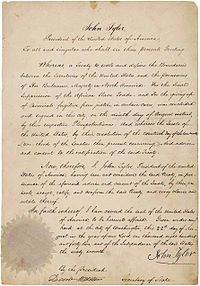 John Tyler
President of the United States of America
To all and singular who shall see these Presents Greeting
Whereas a Treaty to settle and define the Boundaries
between the territories of the United States and the possessions
of Her Britannic Majesty in North America: For the final
Suppression of the African Slave Trade: and for the giving up
of Criminals fugitive from justice, in certain cases, was concluded
and signed at this city on the ninth day of August
by their respective Plenipotentiaries: And whereas the Senate of
the United States by their resolution of the
two thirds of the Senators then present concurring, did advise
and consent to the ratification of the said Treaty:
Now, therefore, I, John Tyler, President of the United
States of America, having seen and considered the said Treaty, in pur-
suance of the aforesaid advice and consent of the Senate, by these
accept, ratify, and confirm the said Treaty and every clause
thereof.
In faith whereof, I have caused the seal of the United States
of America to be hereunto affixed. Given under my
hand, at the City of Washington, this 22d day of
in the year of our Lord one thousand eight hundred
and forty-two, and of the Independence of the said States
the sixty seventh.
John Tyler
By the President:
Secretary of State